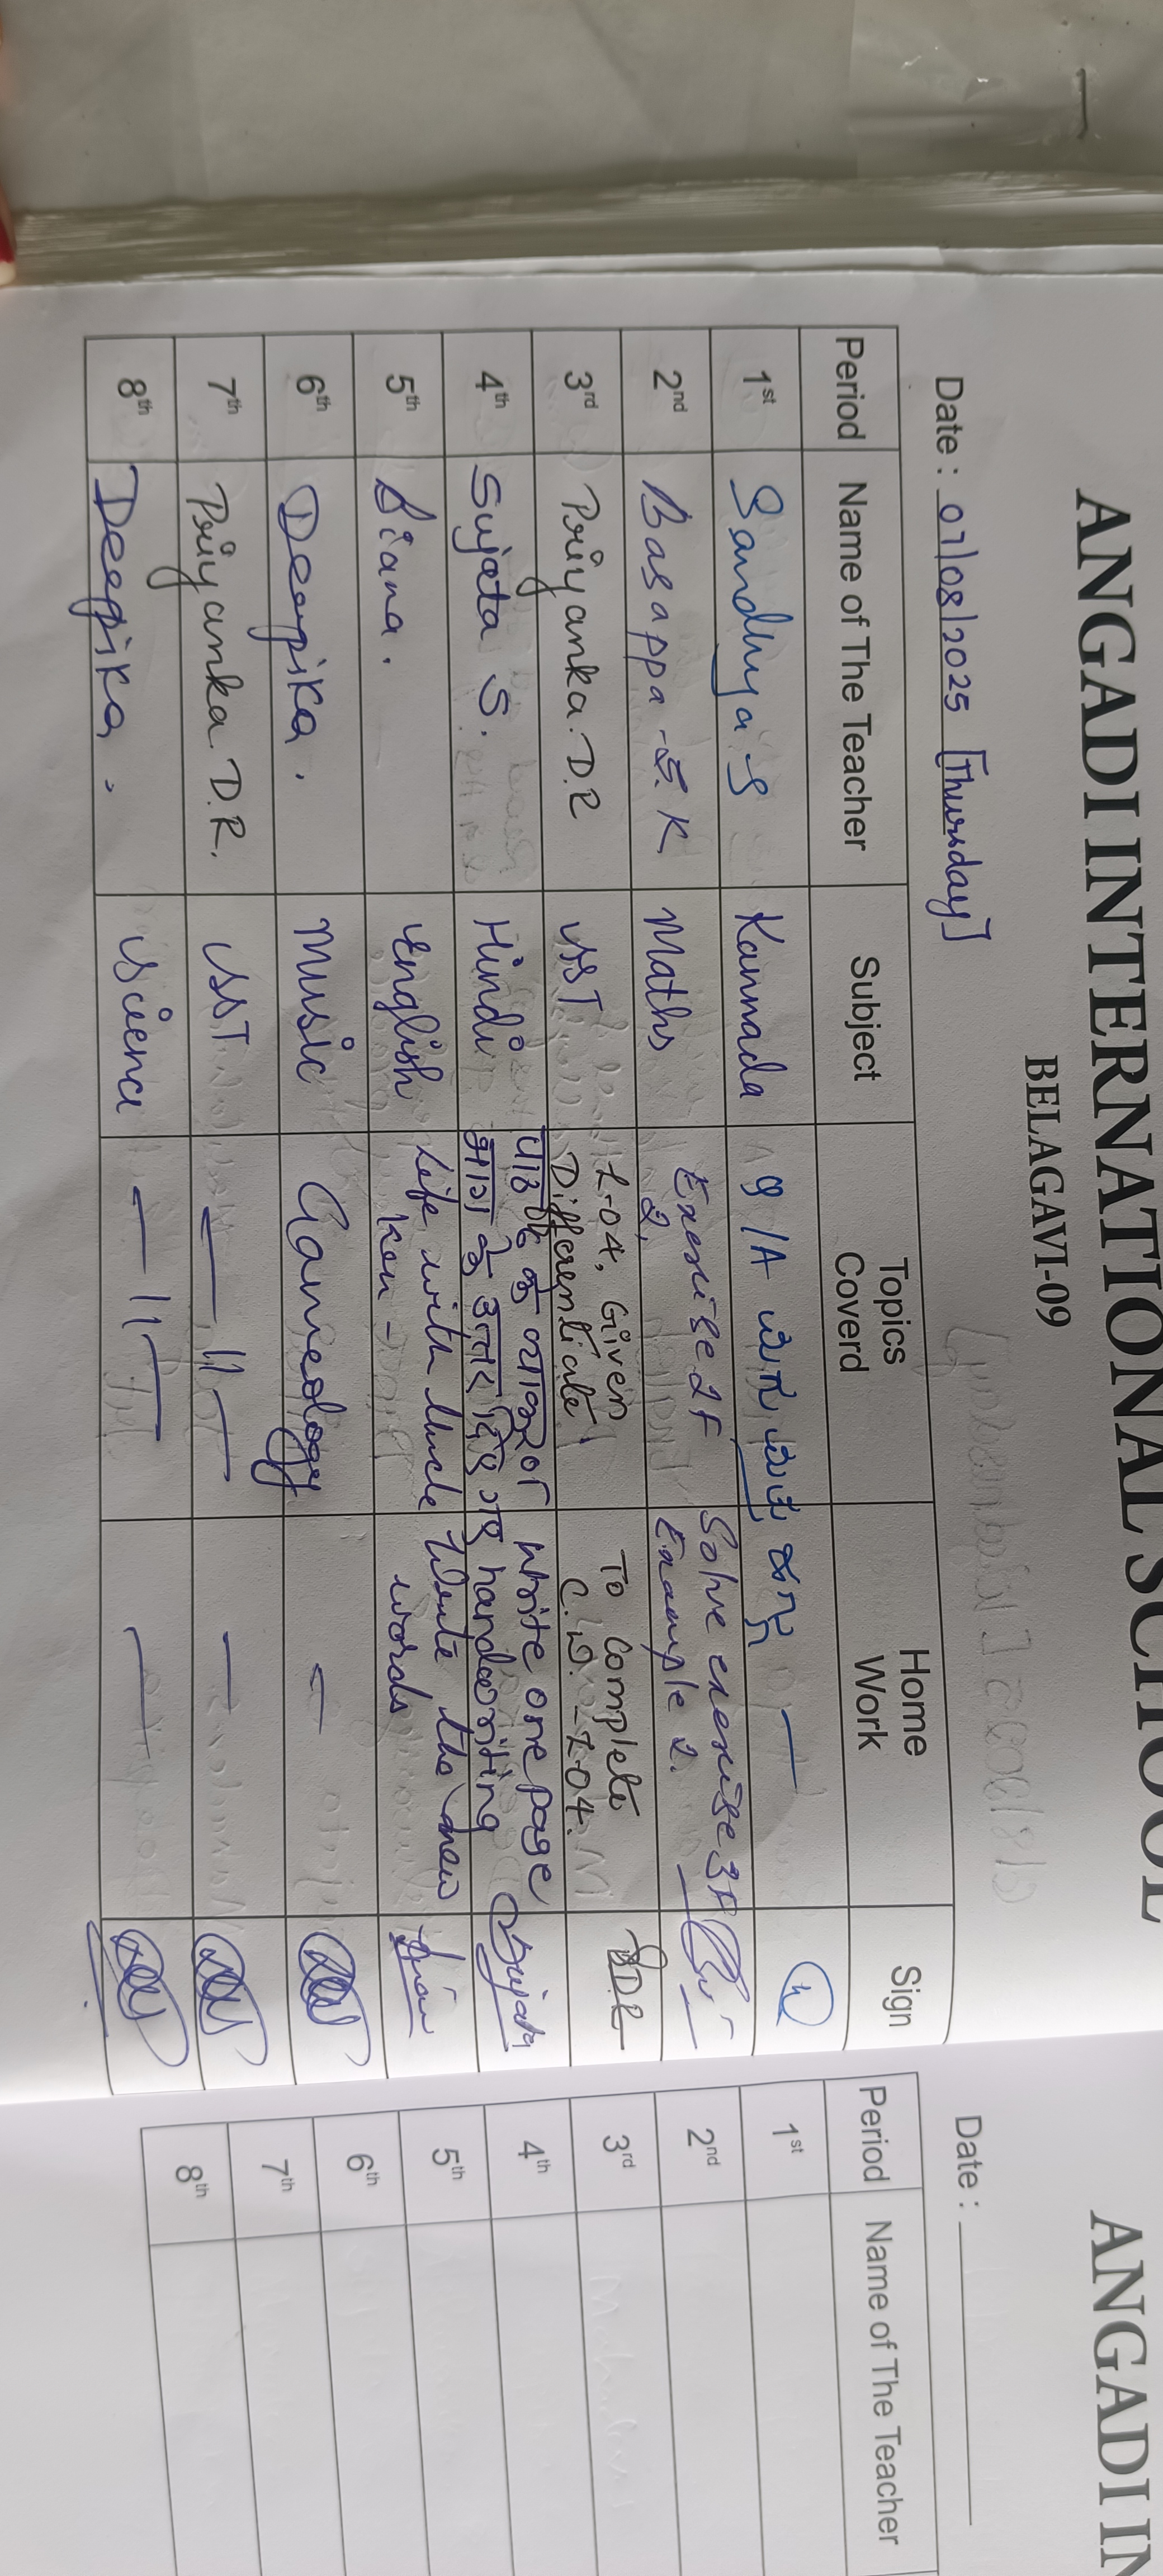 ANGADI INTERNATIONAL SCHOOL
BELAGAVI-09
Date : 07/08/2025 [Thursday]
Period Name of The Teacher Subject Topics Coverd Home Work Sign
1st Sandhya S Kannada 9 1A —
2nd Basappa S. K. Maths Exercise 2F 2, Solve exercise 3A Example 2.
3rd Priyanka. D.R SST L-04, Given Differentiate. To Complete C.W. - L-04. PDR
4th Sujata S. Hindi पाठ के के उत्तर दिए गए write one page handwriting Sujata
5th Diana. English Life with Uncle Ken - Write the new words
6th Deepika. Music Ganneology —
7th Priyanka. D.R. SST — 11 — —
8th Deepika. Science — 11 — —
ANGADI IN
Date :
Period Name of The Teacher
1st
2nd
3rd
4th
5th
6th
7th
8th